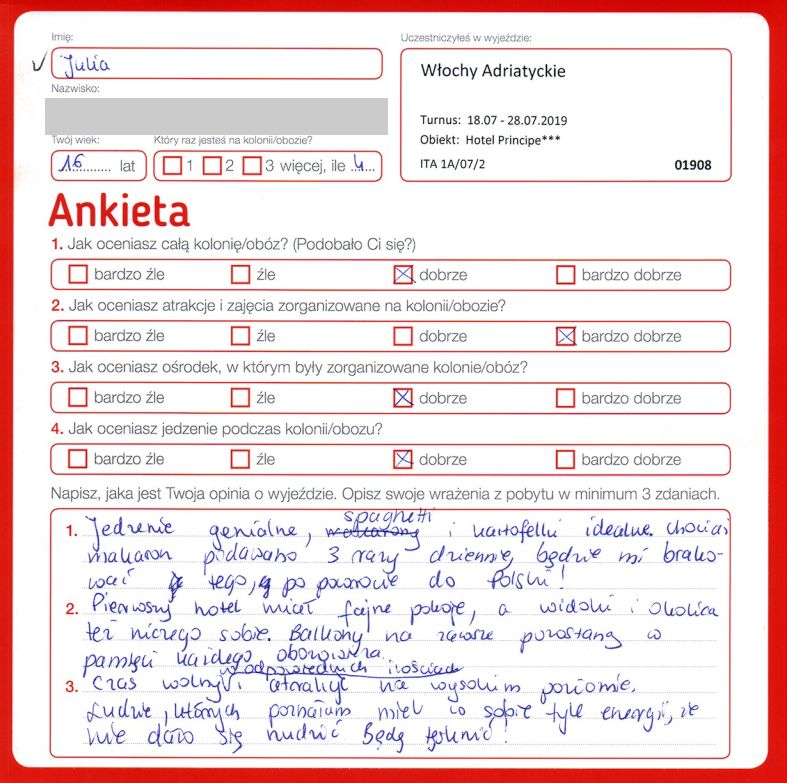 Imię:
Uczestniczyłeś w wyjeździe:
Julia
Włochy Adriatyckie
Nazwisko:
Turnus: 18.07 - 28.07.2019
Obiekt: Hotel Principe***
ITA 1A/07/2 01908
Twój wiek: Który raz jesteś na kolonii/obozie?
16 lat 1 2 3 więcej, ile 4
Ankieta
1. Jak oceniasz całą kolonię/obóz? (Podobało Ci się?)
bardzo źle źle dobrze bardzo dobrze
2. Jak oceniasz atrakcje i zajęcia zorganizowane na kolonii/obozie?
bardzo źle źle dobrze bardzo dobrze
3. Jak oceniasz ośrodek, w którym były zorganizowane kolonie/obóz?
bardzo źle źle dobrze bardzo dobrze
4. Jak oceniasz jedzenie podczas kolonii/obozu?
bardzo źle źle dobrze bardzo dobrze
Napisz, jaka jest Twoja opinia o wyjeździe. Opisz swoje wrażenia z pobytu w minimum 3 zdaniach.
spaghetti
1. Jedzenie genialne, makarony i kartofelki idealne. Chociaż
makaron podawano 3 razy dziennie, będzie mi brako-
wać tego, po powrocie do Polski!
2. Pierwszy hotel miał fajne pokoje, a widoki i okolica
też niczego sobie. Balkony na zawsze pozostaną w
pamięci każdego obozowicza.
w odpowiednich ilościach
3. Czas wolny i atrakcje na wysokim poziomie.
Ludzie, których poznałam mieli w sobie tyle energii, że
nie dało się nudzić. Będę tęsknić!